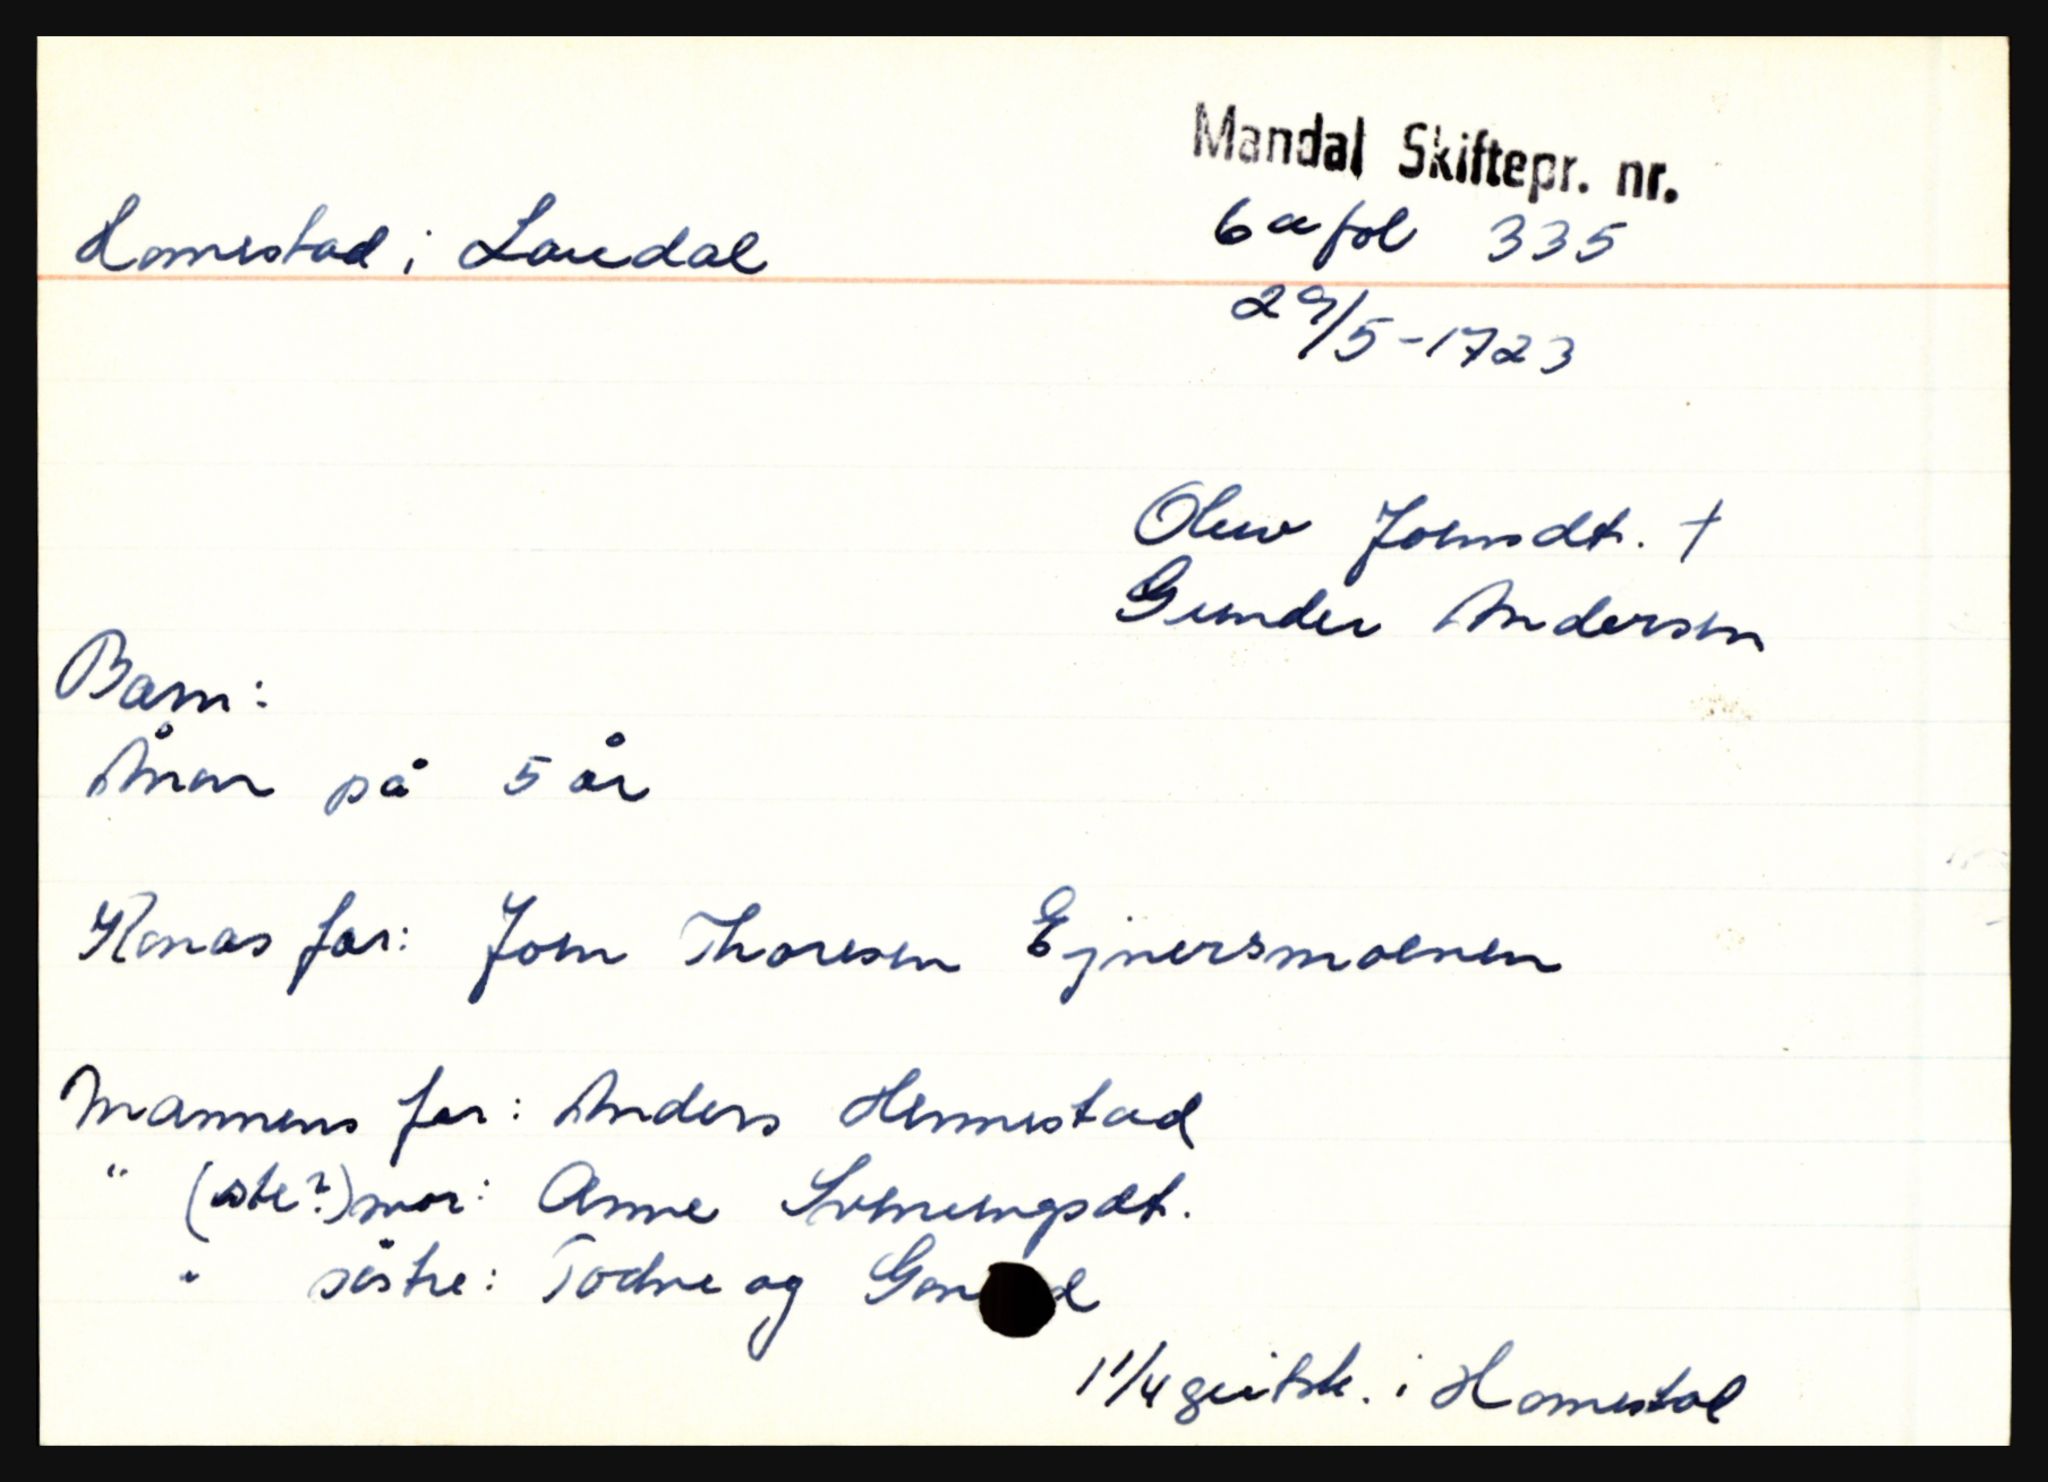 Mandal Skiftepr. nr.
Homestad i Laudal
6a fol 335
29/5-1723
Oluv Joensdt. †
Gunder Andersen
Barn:
Ånon på 5 år
Konas far: Joen Thoresen Ejnersmoenen
Mannens far: Anders Hemmestad
" (ste?)mor: Anne Svenungsdt.
" söstre: Todne og
1 1/4 geitsk. i Homestad